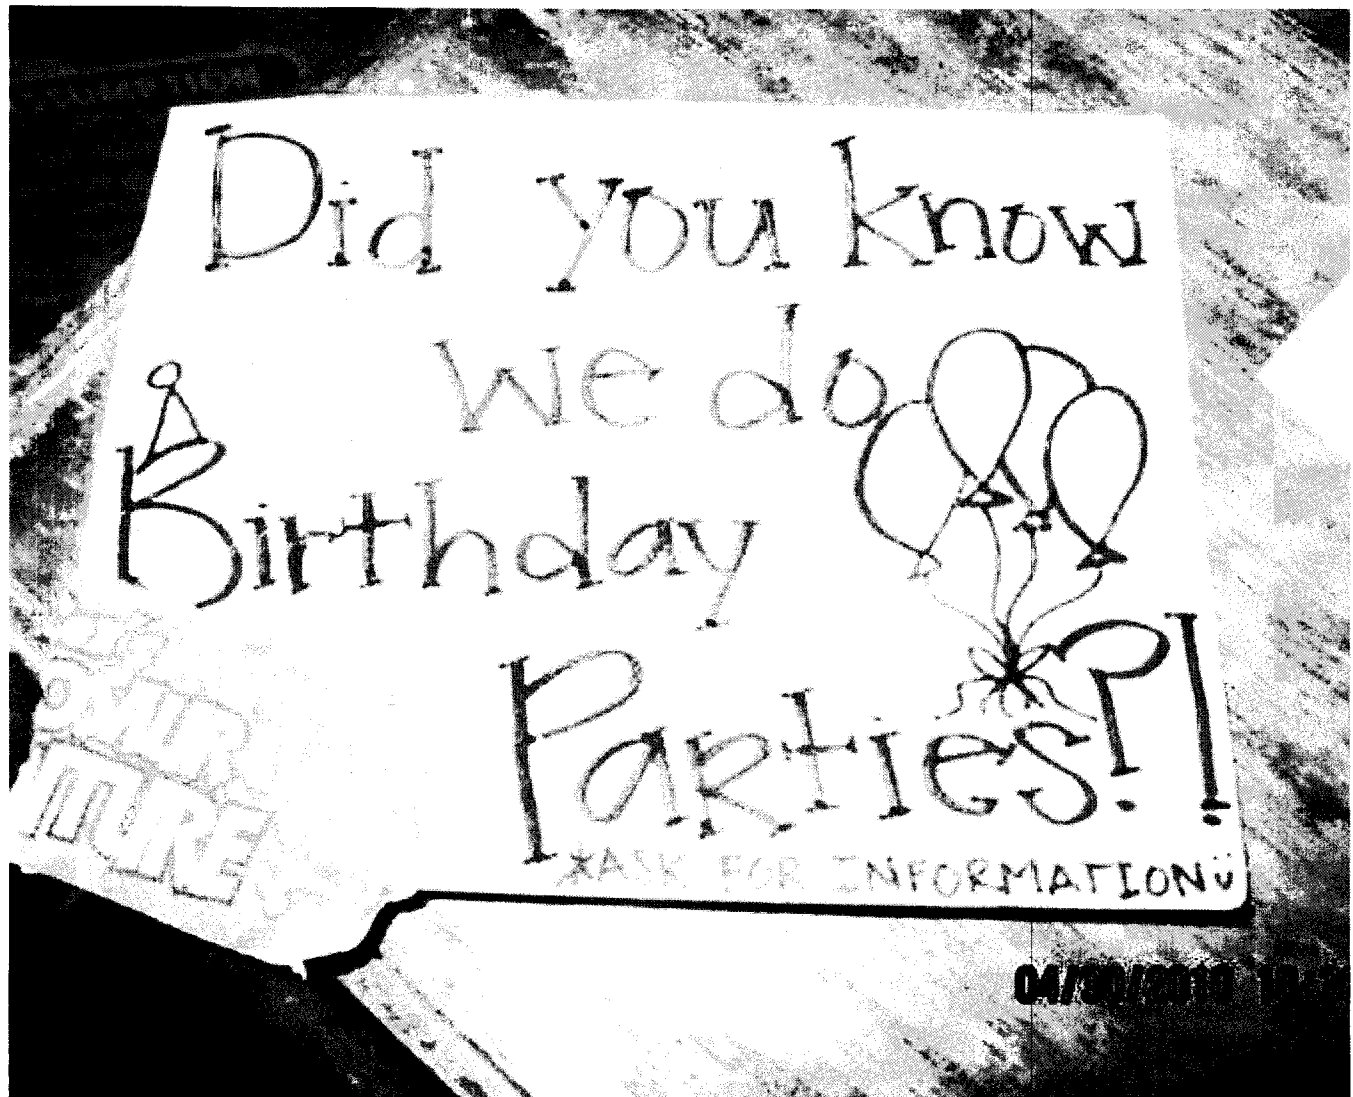 Did you know
we do
Birthday
Parties?!
*ASK FOR INFORMATION ü